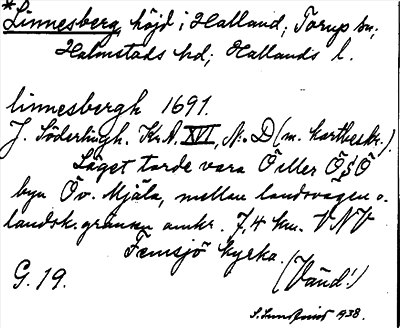 *Linnesberg, höjd i Halland; Torup sn;
Halmstads hd; Hallands l.
linnesbergh 1691.
J. Söderlingh. Kr.A. XVI, N:o D (m. kartbeskr.)
Läget torde vara Ö eller ÖSÖ
byn Öv. Mjäla, mellan landsvägen o.
landsk.gränsen omkr. 7,4 km. VNV
Femsjö kyrka.
(Vänd!)
G. 19.
1938.